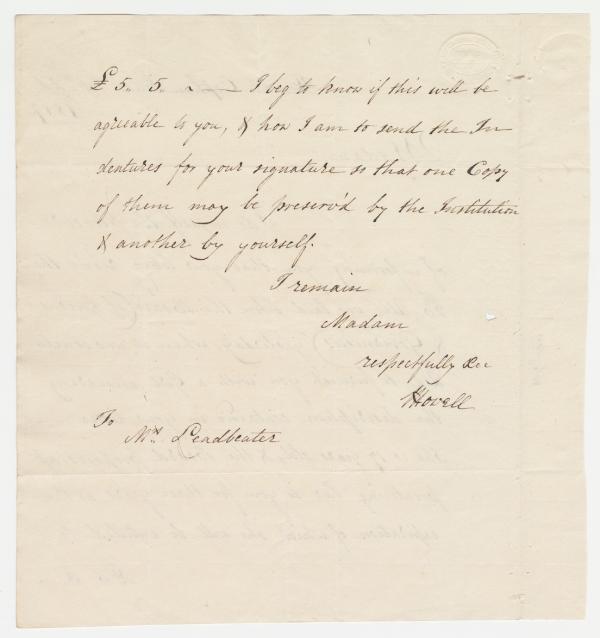 £ 5„ 5„ ~ — I beg to know if this will be
agreeable to you, & how I am to send the In
dentures for your signature so that one Copy
of them may be preserv'd by the Institution
& another by yourself.
I remain
Madam
respectfully &cc
Hovell
To
Mrs Leadbeater